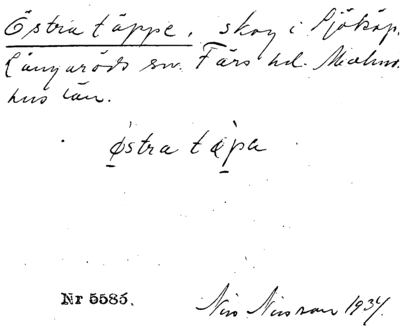 Östra täppe, skog i Sjököp.
Långaröds sn. Färs hd. Malmö
hus län.
østra tɑpa
Nr 5585.
Nils Nilsson 1937.